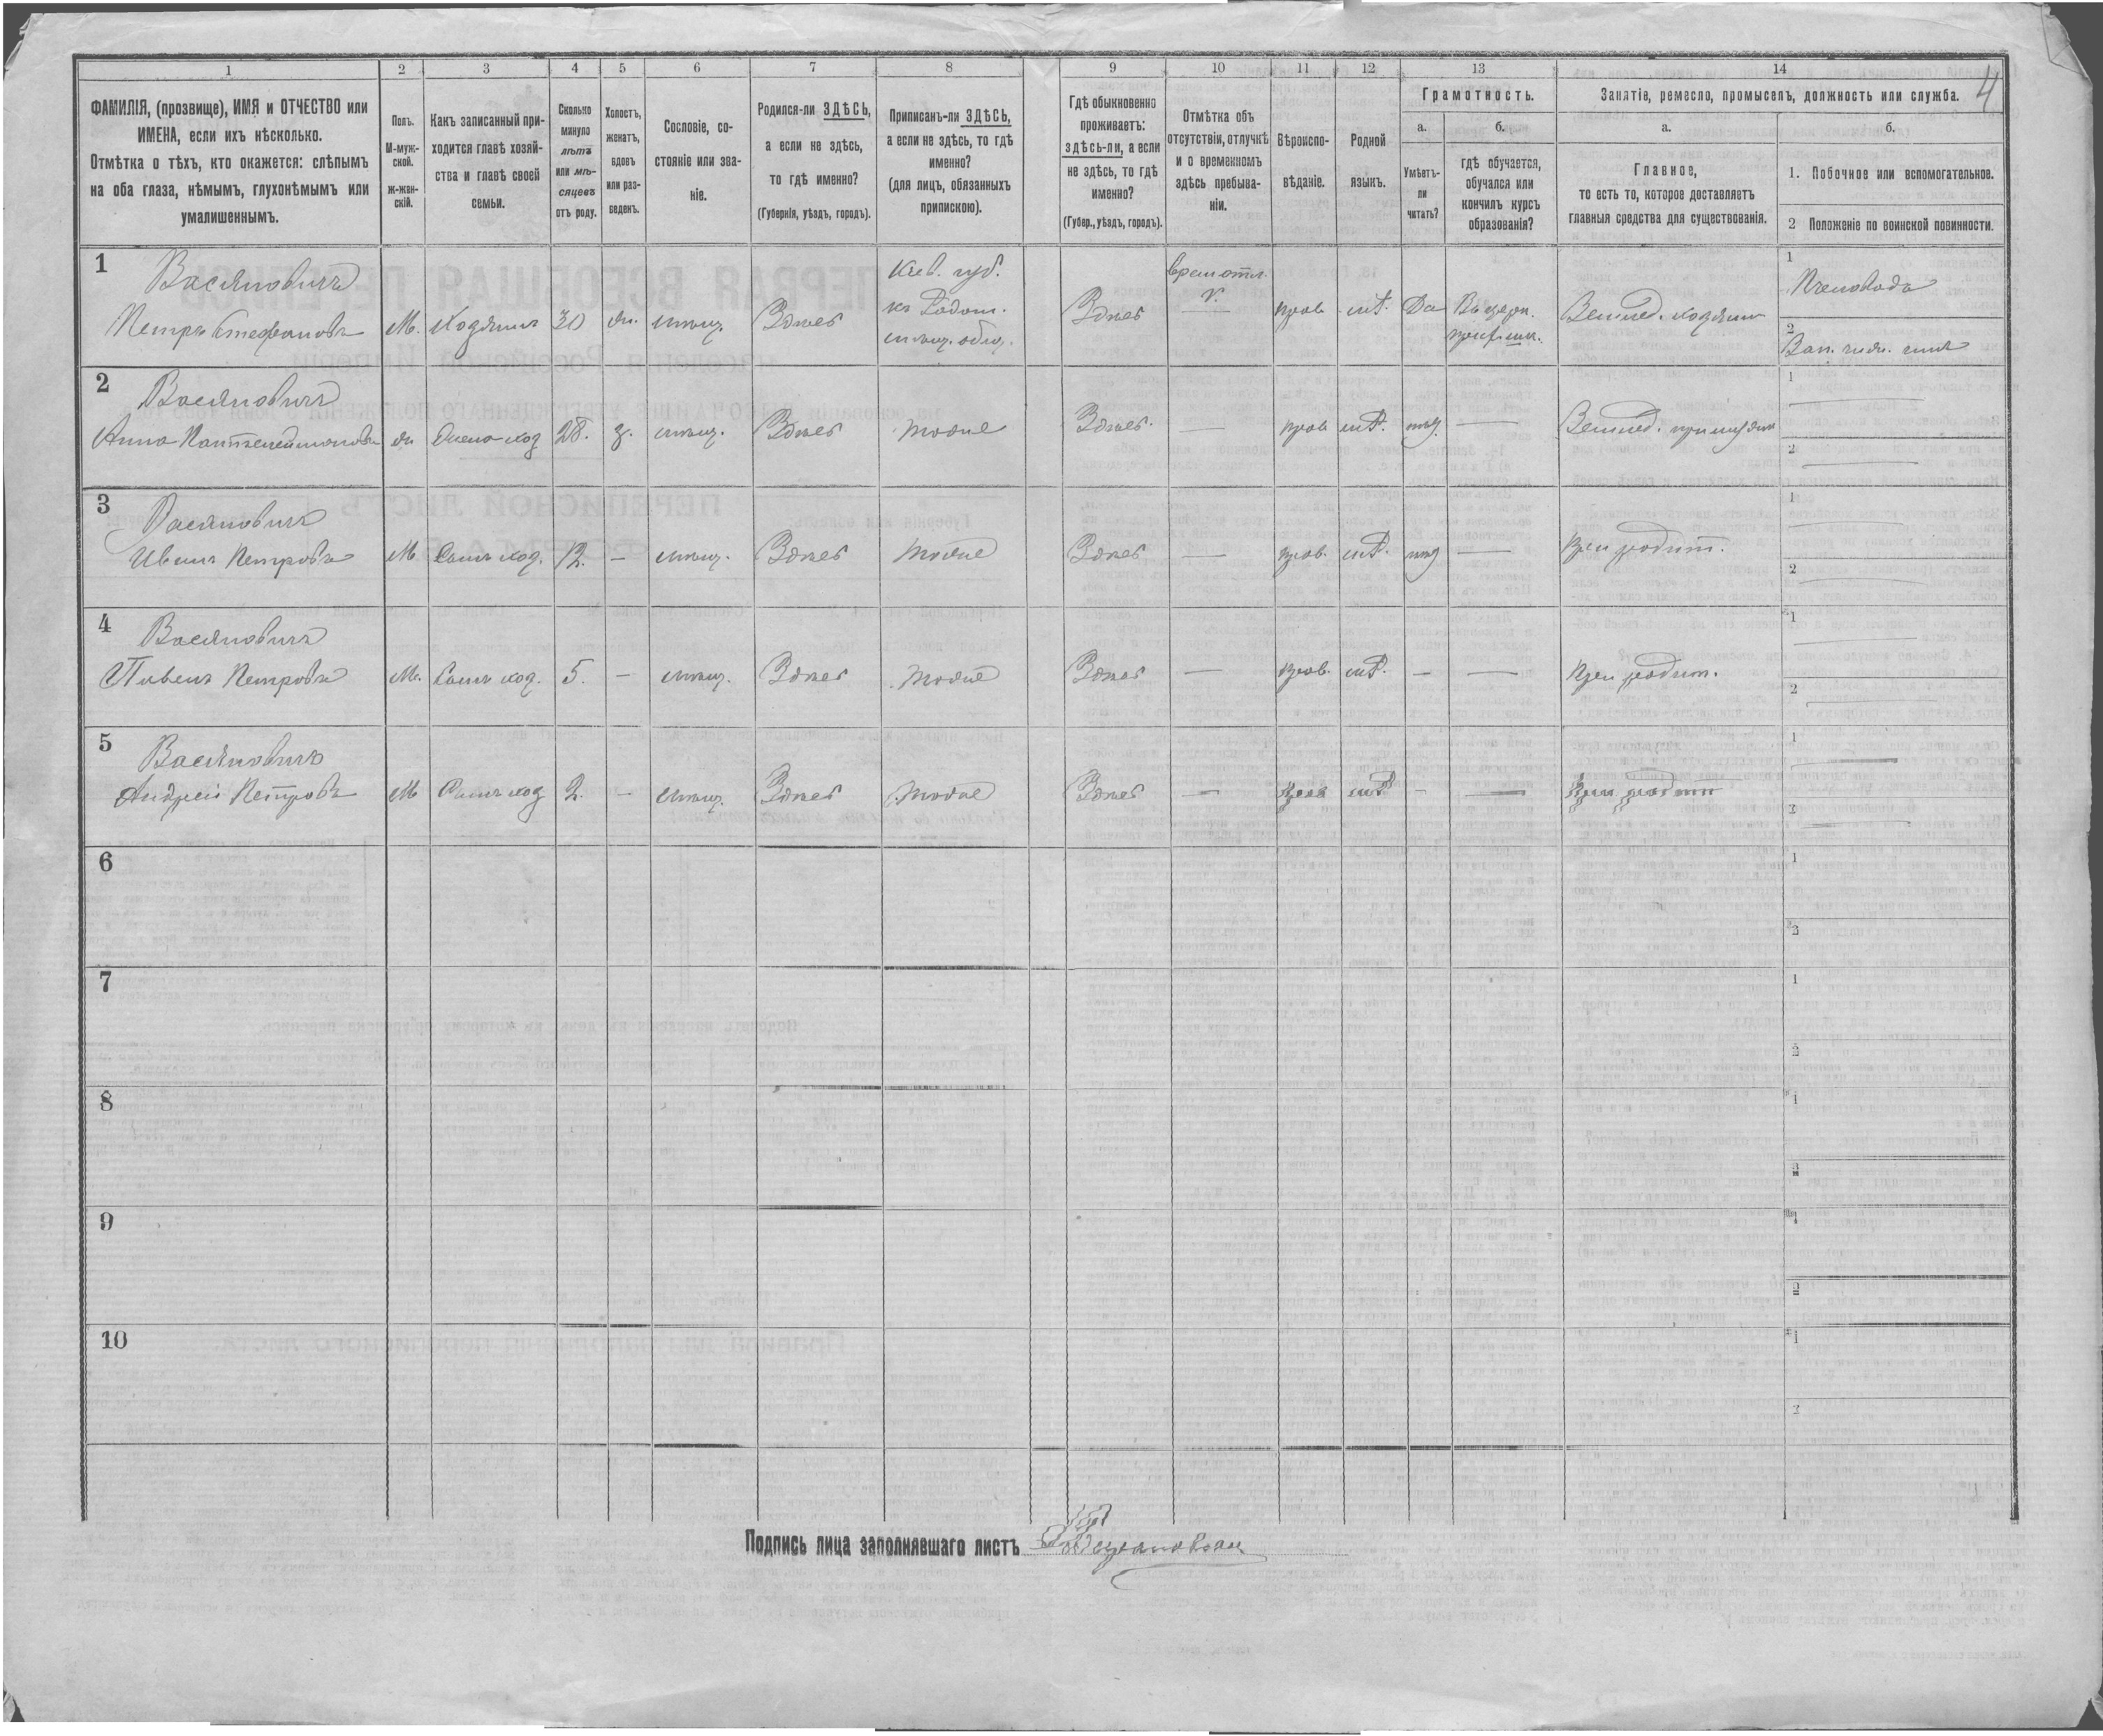 4
1 2 3 4 5 6 7 8 9 10 11 12 13 14
ФАМИЛІЯ, (прозвище), ИМЯ и ОТЧЕСТВО или
ИМЕНА, если ихъ нѣсколько.
Отмѣтка о тѣхъ, кто окажется: слѣпымъ
на оба глаза, нѣмымъ, глухонѣмымъ или
умалишеннымъ.
Полъ.
М-муж-
ской.
Ж-жен-
скій.
Какъ записанный при-
ходится главѣ хозяй-
ства и главѣ своей
семьи.
Сколько
минуло
лѣтъ
или мѣ-
сяцевъ
отъ роду.
Холостъ,
женатъ,
вдовъ
или раз-
веденъ.
Сословіе, со-
стояніе или зва-
ніе.
Родился-ли ЗДѢСЬ,
а если не здѣсь,
то гдѣ именно?
(Губернія, уѣздъ, городъ).
Приписанъ-ли ЗДѢСЬ,
а если не здѣсь, то гдѣ
именно?
(для лицъ, обязанныхъ
припискою).
Гдѣ обыкновенно
проживаетъ:
здѣсь-ли, а если
не здѣсь, то гдѣ
именно?
(Губер., уѣздъ, городъ).
Отмѣтка объ
отсутствіи, отлучкѣ
и о временномъ
здѣсь пребыва-
ніи.
Вѣроиспо-
вѣданіе.
Родной
языкъ.
Грамотность.
а.
Умѣетъ-
ли
читать?
б.
гдѣ обучается,
обучался или
кончилъ курсъ
образованія?
Занятіе, ремесло, промыселъ, должность или служба.
а.
Главное,
то есть то, которое доставляетъ
главныя средства для существованія.
б.
1. Побочное или вспомогательное.
2 Положеніе по воинской повинности.
1 Васяновичъ
Петръ Стефановъ М. Хозяинъ 30 ж. мѣщ. Здѣсь
Кіев. губ.
мѣщ. общ.
Здѣсь
прав. Да
1
2
2 Васяновичъ
Анна Пантелеймонова ж Жена хоз 28. з. мѣщ. Здѣсь тоже Здѣсь. — прав —
1
2
3 Васяновичъ
Иванъ Петровъ М Сынъ хоз. 12. — мѣщ. Здѣсь тоже Здѣсь — прав. — При родит.
1
2
4 Васяновичъ
Павелъ Петровъ М. Сынъ хоз. 5. — мѣщ. Здѣсь тоже Здѣсь — прав. — — При родит.
1
2
5 Васяновичъ
Андрей Петровъ М Сынъ хоз 2. — мѣщ. Здѣсь тоже Здѣсь — прав — — При родит
1
2
6
1
2
7
1
2
8
1
2
9
1
2
10
1
2
Подпись лица заполнявшаго листъ